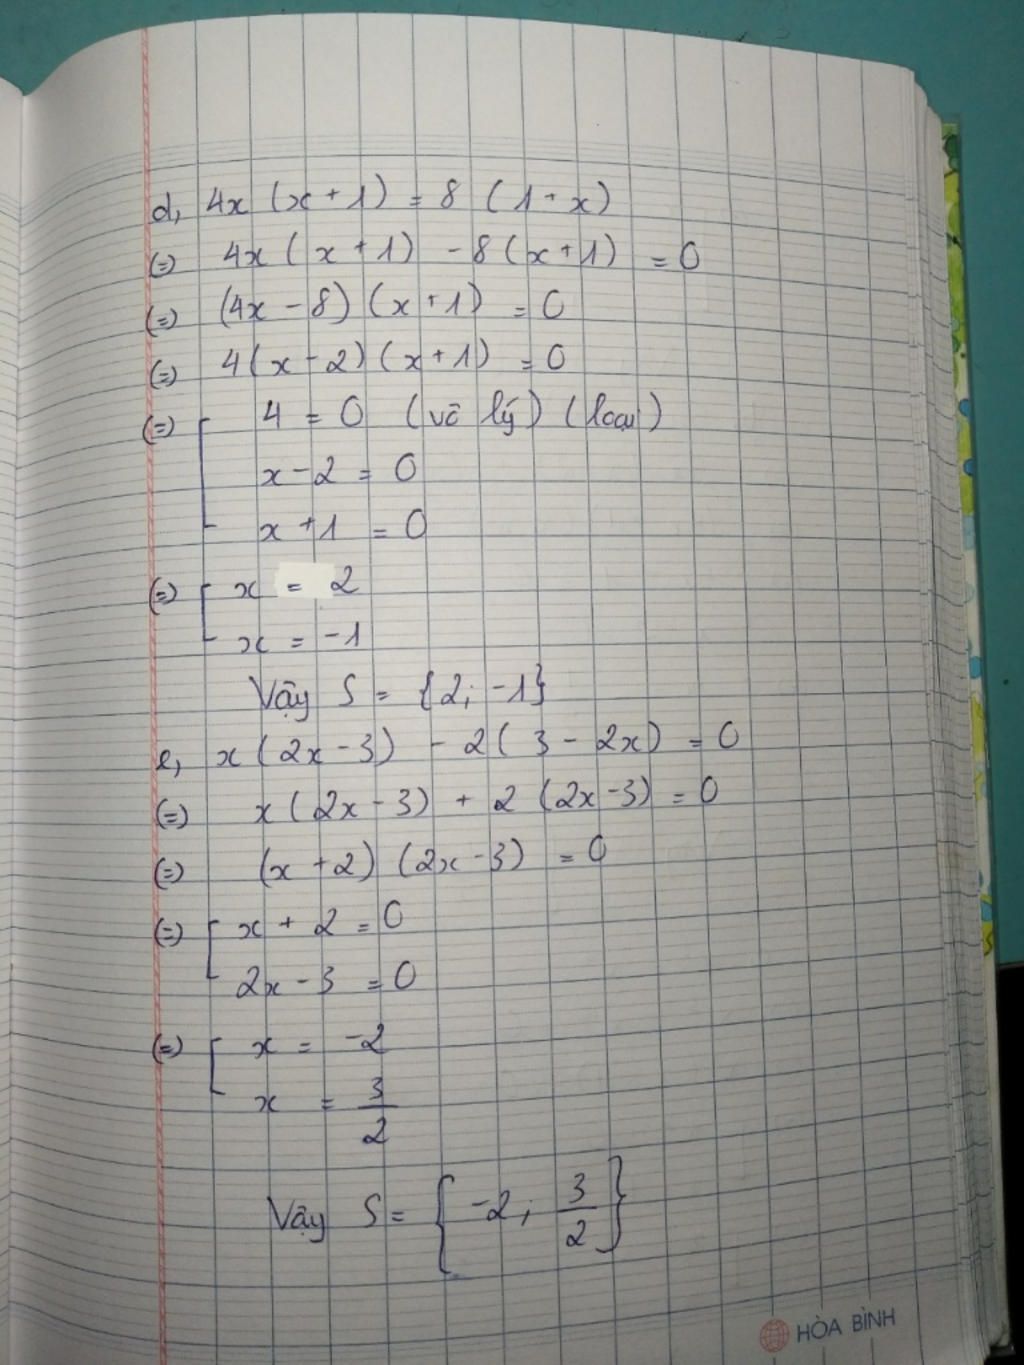 d, 4x (x + 1) = 8 (1 + x)
(=) 4x ( x + 1) - 8 ( x + 1) = 0
(=) (4x - 8) (x + 1) = 0
(=) 4 ( x - 2) (x + 1) = 0
(=) [ 4 = 0 (vô lý) (loại)
x - 2 = 0
x + 1 = 0
(=) [ x = 2
x = -1
Vậy S = {2; -1}
e, x (2x - 3) - 2 ( 3 - 2x) = 0
(=) x ( 2x - 3) + 2 (2x - 3) = 0
(=) (x + 2) (2x - 3) = 0
(=) [ x + 2 = 0
2x - 3 = 0
(=) [ x = -2
x = 3/2
Vậy S = { -2; 3/2 }
HÒA BÌNH